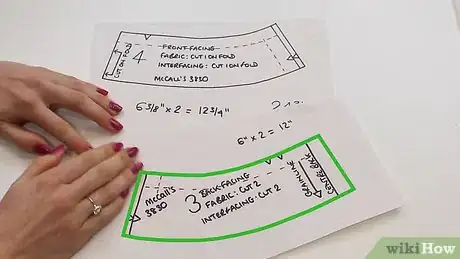 CUT ON FOLD
4
FRONT FACING
FABRIC: CUT ON FOLD
INTERFACING: CUT ON FOLD
McCALL'S 3830
6 3/8" x 2 = 12 3/4"
6" x 2 = 12"
McCALL'S
3830
3
BACK FACING
FABRIC: CUT 2
INTERFACING: CUT 2
GRAINLINE
CENTER BACK
wikiHow